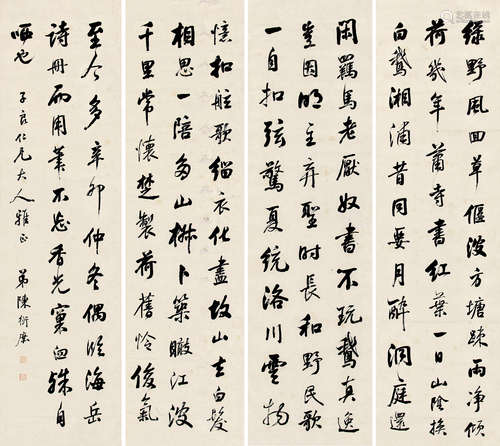 綠野風回草偃波方塘疎雨净傾
荷幾年蕭寺書紅葉一日山陰換
白鵞湘浦昔同要月醉洞庭還
閑羈馬老厭奴書不玩鵞真逸
豈因明主弃聖時長和野民歌
一自扣弦驚夏統洛川雲物
憶扣舷歌緇衣化盡故山去白髮
相思一陪多山椒卜築瞰江波
千里常懷楚製荷舊怜俊氣
至今多辛卯仲冬偶臨海岳
詩册而用筆不忘香光殊自
哂也 子良仁兄大人雅正 弟陳衍庶